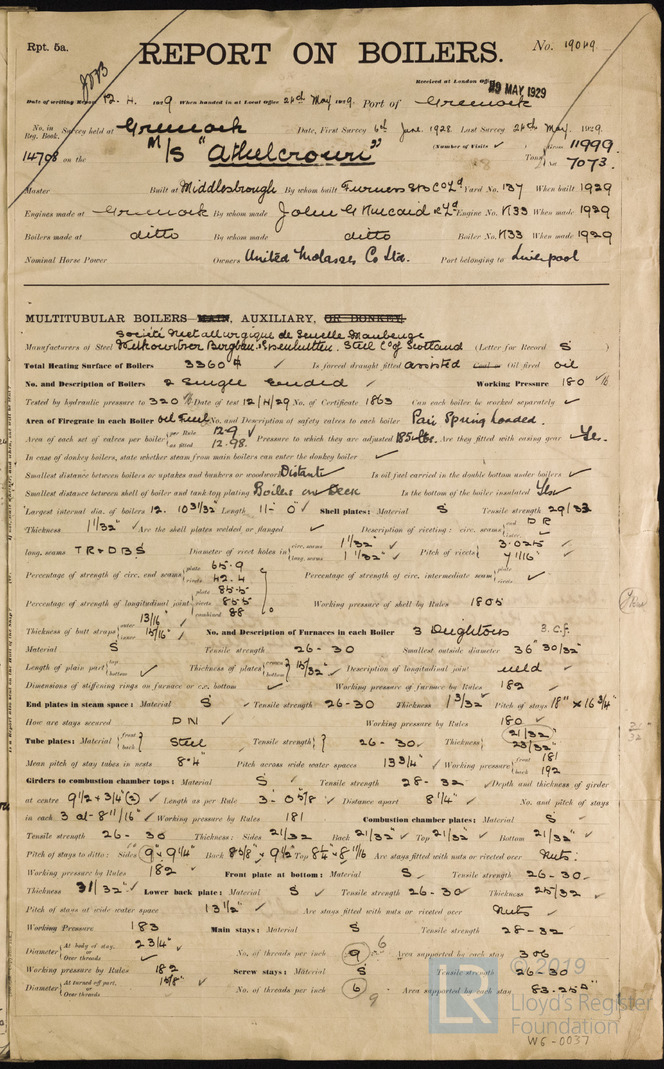 Rpt. 5a.
REPORT ON BOILERS.
No. 19049
Received at London Office 29 MAY 1929
Date of writing Report 12. 4. 1929 When handed in at Local Office 28th May 1929. Port of Greenock
No. in Reg. Book. Survey held at Greenock Date, First Survey 6th June 1928 Last Survey 24th May 1929.
(Number of Visits ✓
14708 on the M/S "Athelcrown" Tons Gross 11999
Net 7073.
Master Built at Middlesbrough By whom built Furness S.B. Co Ld Yard No. 137 When built 1929
Engines made at Greenock By whom made John G Kincaid & Ld Engine No. K33 When made 1929
Boilers made at ditto By whom made ditto Boiler No. K33 When made 1929
Nominal Horse Power Owners United Molasses Co Ltd. Port belonging to Liverpool
MULTITUBULAR BOILERS MAIN, AUXILIARY, OR DONKEY.
Société Metallurgique de Senelle Maubeuge
Manufacturers of Steel Witkowitzer Bergbau. Eisenhutten. Steel Co of Scotland (Letter for Record S )
Total Heating Surface of Boilers 3360 Is forced draught fitted assisted Coal or Oil fired oil
No. and Description of Boilers 2 Single ended ✓ Working Pressure 180 ✓ lb
Tested by hydraulic pressure to 320 Date of test 12/4/29 No. of Certificate 1863 Can each boiler be worked separately ✓
Area of Firegrate in each Boiler oil Fuel No. and Description of safety valves to each boiler Pair Spring Loaded.
Area of each set of valves per boiler per Rule 12.9 ✓
as fitted 12.98. Pressure to which they are adjusted 185 lbs. Are they fitted with easing gear ✓ Yes.
In case of donkey boilers, state whether steam from main boilers can enter the donkey boiler ✓
Smallest distance between boilers or uptakes and bunkers or woodwork Distant ✓ Is oil fuel carried in the double bottom under boilers ✓
Smallest distance between shell of boiler and tank top plating Boilers on Deck Is the bottom of the boiler insulated Yes ✓
Largest internal dia. of boilers 12. 10 31/32 Length 11'- 0" ✓ Shell plates: Material S Tensile strength 29/33
Thickness 1 1/32" ✓ Are the shell plates welded or flanged ✓ Description of riveting: circ. seams end DR
inter. ✓
long. seams TR & DBS Diameter of rivet holes in circ. seams 1 1/32"
long. seams 1 1/32" ✓ Pitch of rivets 3.025 ✓
7 1/16"
Percentage of strength of circ. end seams plate 65.9
rivets 42.4 Percentage of strength of circ. intermediate seam plate
rivets ✓
Percentage of strength of longitudinal joint plate 85.5
rivets 85.5
combined 88 Working pressure of shell by Rules 180
Thickness of butt straps outer 13/16" ✓
inner 15/16" ✓ No. and Description of Furnaces in each Boiler 3 Deightons B.c.f.
Material S Tensile strength 26-30 Smallest outside diameter 36" 30/32"
Length of plain part top
bottom ✓ Thickness of plates crown
bottom 15/32" ✓ Description of longitudinal joint weld ✓
Dimensions of stiffening rings on furnace or c.c. bottom ✓ Working pressure of furnace by Rules 182 ✓
End plates in steam space: Material S ✓ Tensile strength 26-30 Thickness 1 3/32" ✓ Pitch of stays 18" × 16 3/4"
How are stays secured DN ✓ Working pressure by Rules 180 ✓
Tube plates: Material front
back Steel ✓ Tensile strength 26-30 ✓ Thickness 21/32"
23/32"
Mean pitch of stay tubes in nests 8.4" Pitch across wide water spaces 13 3/4" ✓ Working pressure front 181
back 192
Girders to combustion chamber tops: Material S ✓ Tensile strength 28-32 ✓ Depth and thickness of girder
at centre 9 1/2 × 3/4 (2) ✓ Length as per Rule 3'- 0 5/8" ✓ Distance apart 8 1/4" ✓ No. and pitch of stays
in each 3 at 8 11/16" ✓ Working pressure by Rules 181 Combustion chamber plates: Material S ✓
Tensile strength 26-30 Thickness: Sides 21/32 Back 21/32" ✓ Top 21/32" ✓ Bottom 21/32" ✓
Pitch of stays to ditto: Sides 9" × 9 1/4" Back 8 5/8" × 9 1/2 Top 8 1/4" × 8 11/16 Are stays fitted with nuts or riveted over Nuts.
Working pressure by Rules 182 ✓ Front plate at bottom: Material S ✓ Tensile strength 26-30
Thickness 31/32" ✓ Lower back plate: Material S ✓ Tensile strength 26-30 ✓ Thickness 25/32 ✓
Pitch of stays at wide water space 13 1/2" ✓ Are stays fitted with nuts or riveted over Nuts ✓
Working Pressure 183 Main stays: Material S Tensile strength 28-32
Diameter At body of stay, or Over threads 2 3/4" ✓ No. of threads per inch 9 6 Area supported by each stay 306
Working pressure by Rules 182 Screw stays: Material S Tensile strength 26-30
Diameter At turned off part, or Over threads 1 5/8" ✓ No. of threads per inch 6 9 Area supported by each stay 83.25
© 2019
Lloyd's Register
Foundation
W6-0037